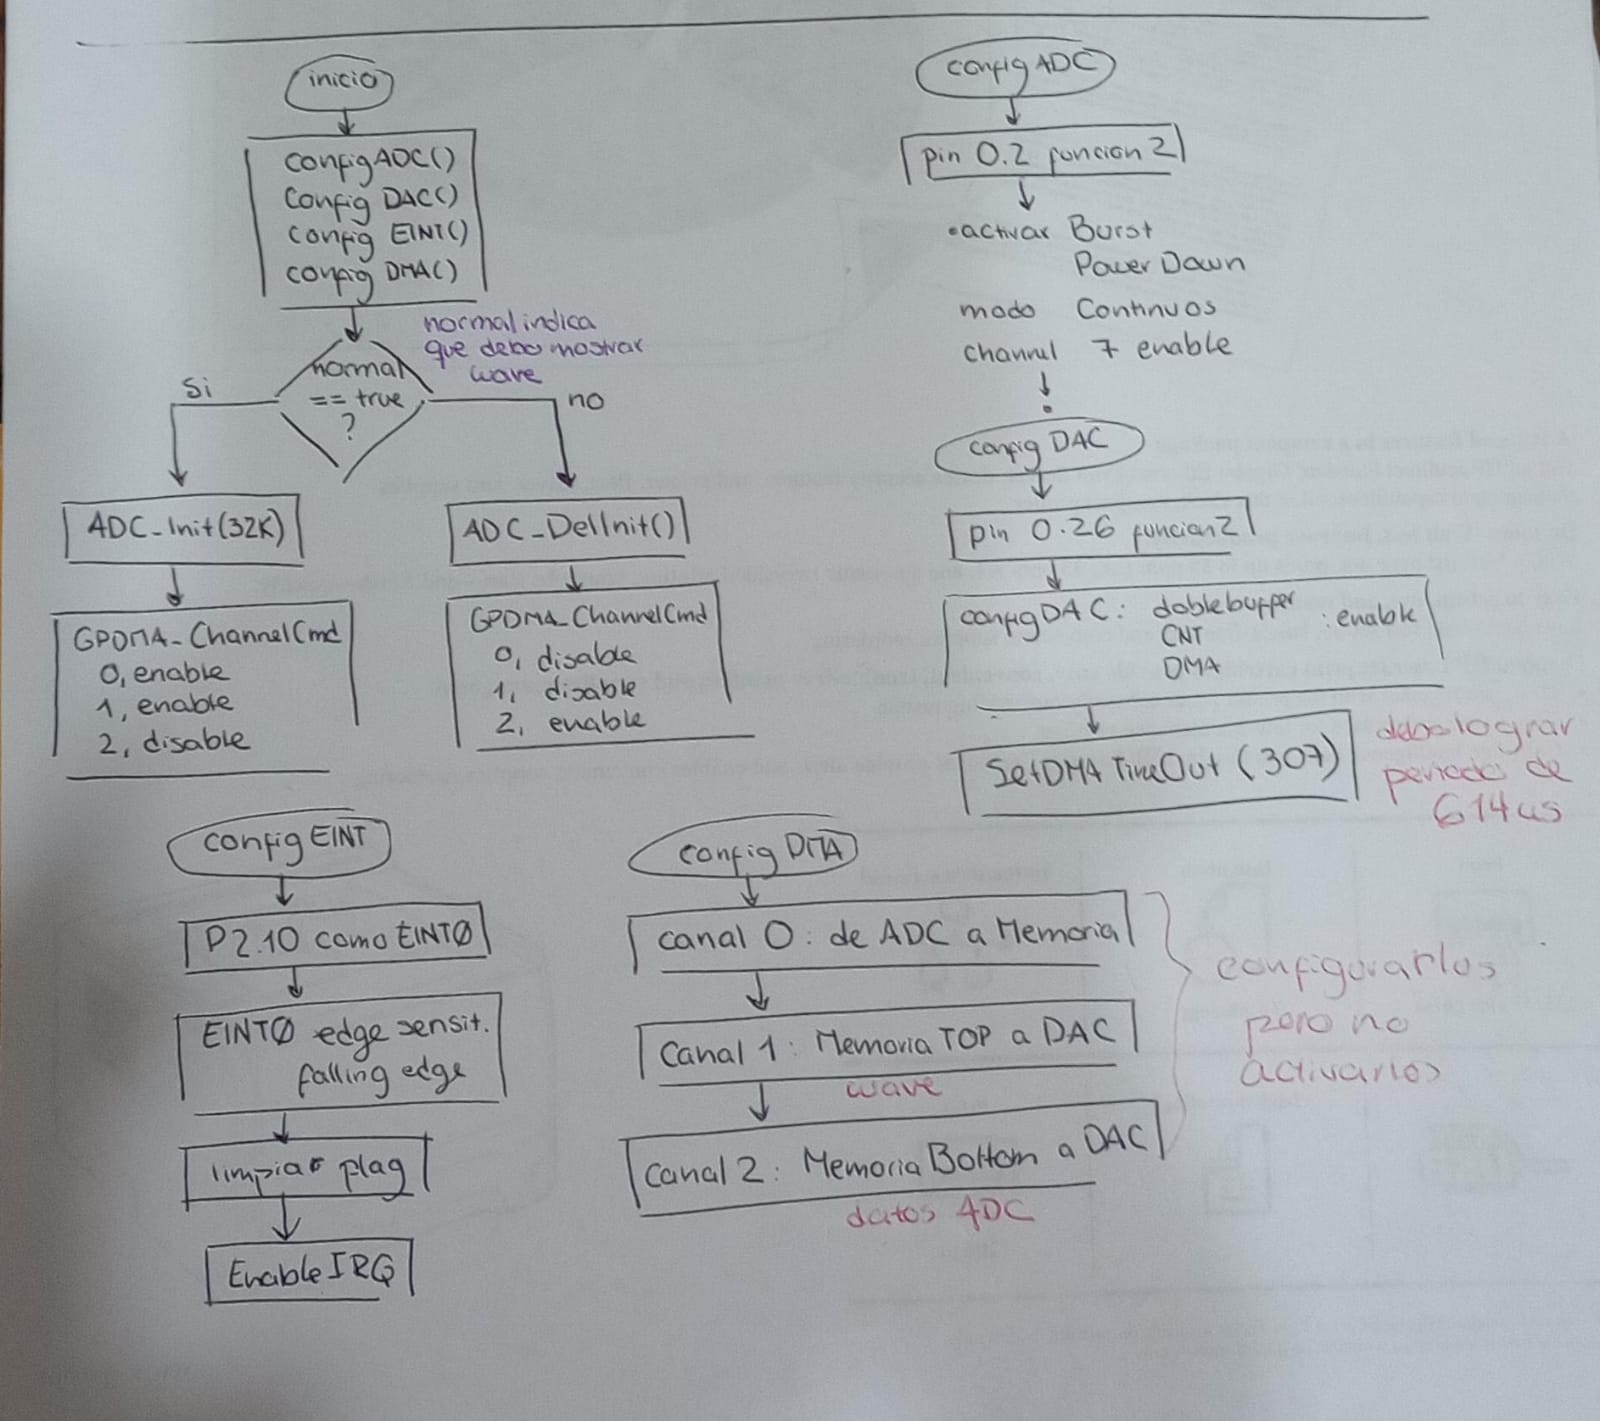 inicio
configADC()
Config DAC()
config EINT()
config DMA()
normal indica
que debo mostrar
wave
normal
== true
?
Si
no
ADC_Init(32K)
GPDMA_ChannelCmd
0, enable
1, enable
2, disable
ADC_DeInit()
GPDMA_ChannelCmd
0, disable
1, disable
2, enable
config ADC
pin 0.2 funcion 2
•activar Burst
Power Down
modo Continuos
channel 7 enable
config DAC
pin 0.26 funcion 2
configDAC: doblebuffer
CNT
DMA
: enable
SetDMA TimeOut (307)
debo lograr
periodo de
614us
config EINT
P2.10 como EINT0
EINT0 edge sensit.
falling edge
limpiar flag
Enable IRQ
config DMA
canal 0: de ADC a Memoria
Canal 1: Memoria TOP a DAC
wave
Canal 2: Memoria Bottom a DAC
datos ADC
configurarlos
pero no
activarlos